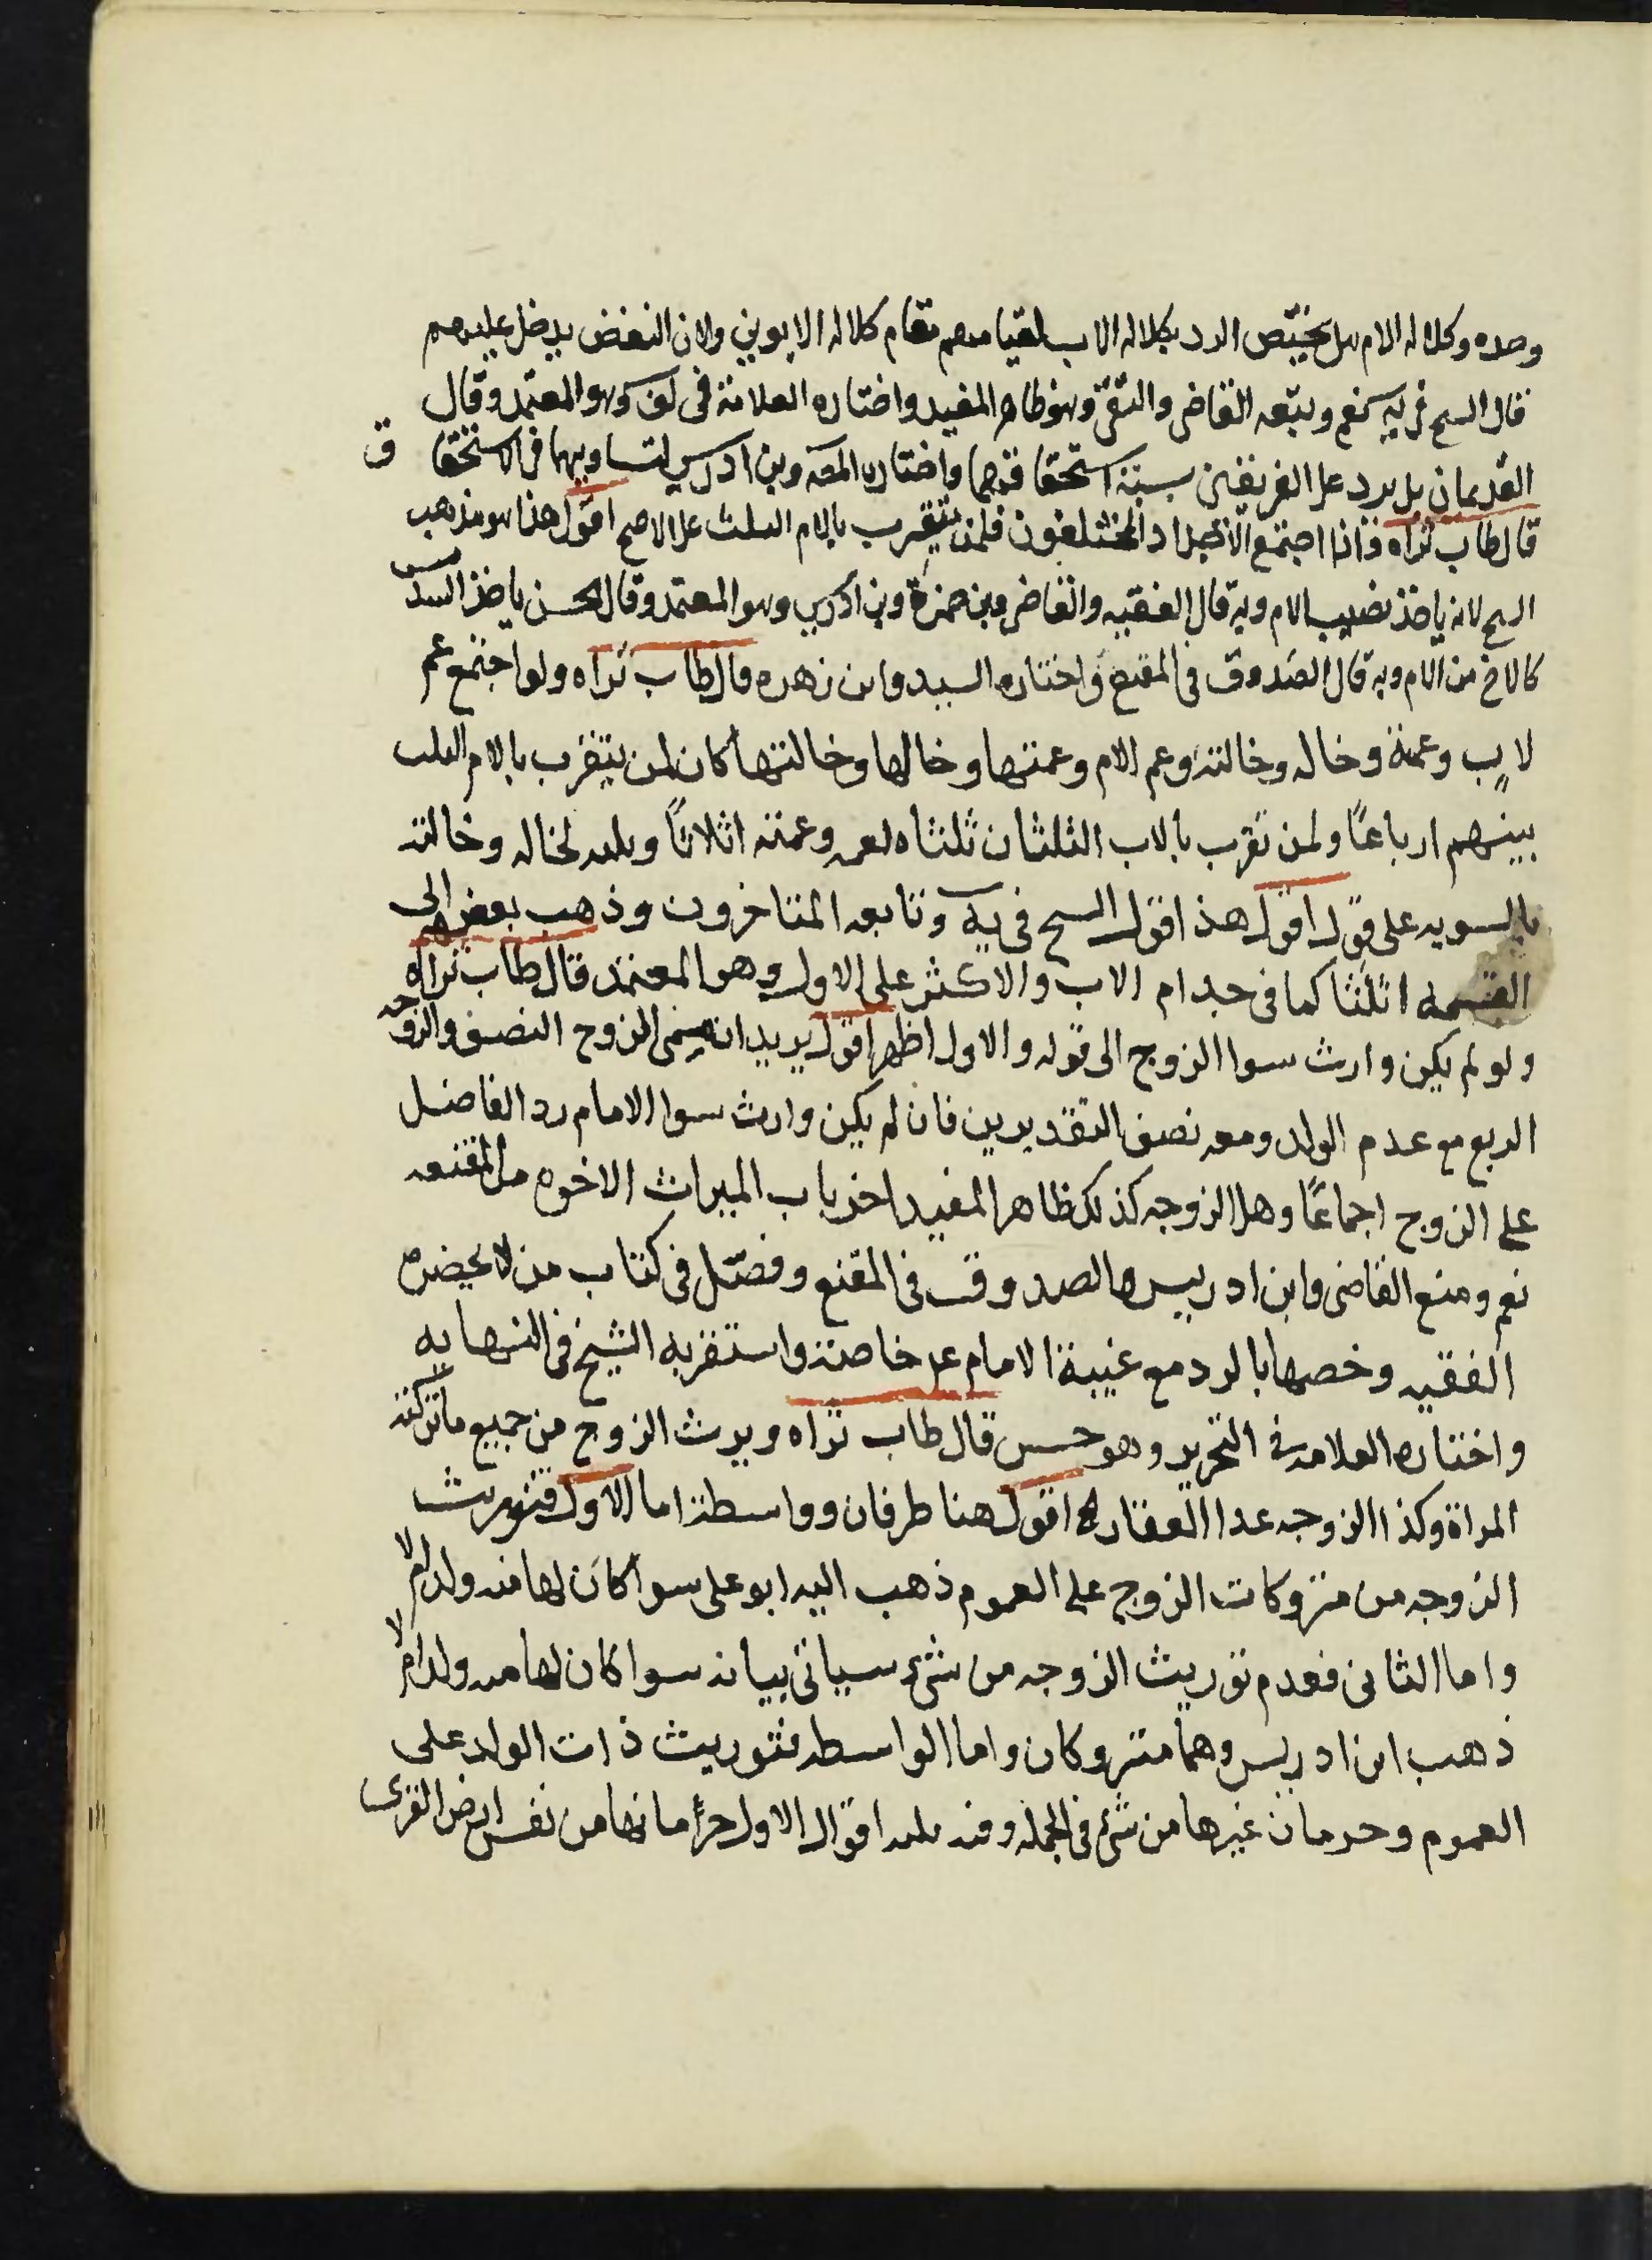 وحده وكلاله الام هل يختص الرد بكلاله الاب لقيامهم مقام كلاله الابوين ولان النقض يدخل عليهم
قال السح فى يه نعم وتبعه القاضى والتقى وهو ظاهر المفيد واختاره العلامة فى لف وهو المعتمد وقال
القديمان بل يرد على الفريقين بنسبة استحقاقهما واختاره المصـ وبن ادريس لتساويهما فى الاستحقاق
قال طاب ثراه فاذا اجتمع الاجداد المختلفون فلمن يتقرب بالام الثلث على الاصح اقول هذا هو مذهب
السح لانه ياخذ نصيب الام وبه قال الفقيه والقاضى وبن حمزة وبن ادريس وهو المعتمد وقال الحسن ياخذ السدس
كالاخ من الام وبه قال الصدوق فى المقنع واختاره السيد وابن زهره قال طاب ثراه ولو اجتمع عم
لاب وعمة وخاله وخالته وعم الام وعمتها وخالها وخالتها كان لمن يتقرب بالام الثلث
بينهم ارباعًا ولمن تقرب بالاب الثلثان ثلثاه لعمه وعمته اثلاثًا وثلثه لخاله وخالته
بالسويه على قول اقول هذا قول السح فى يه وتابعه المتاخرون وذهب بعضهم الى
القسمه اثلثا كما فى جد ام الاب والاكثر على الاول وهو المعتمد قال طاب ثراه
ولو لم يكن وارث سوا الزوج الى قوله والاول اظهر اقول يريد انه سمى الزوج النصف والزوجه
الربع مع عدم الولد ومعه نصف التقديرين فان لم يكن وارث سوا الامام رد الفاضل
على الزوج اجماعًا وهل الزوجه كذلك ظاهر المفيد اخر باب الميراث الاخوه من المقنعه
نعم ومنع القاضى وابن ادريس والصدوق فى المقنع وفصّل فى كتاب من لا يحضره
الفقيه وخصها بالرد مع غيبة الامام ع خاصة واستقربه الشيخ فى النهايه
واختاره العلامه فى التحرير وهو حسن قال طاب ثراه ويرث الزوج من جميع ما تركته
المراة وكذا الزوجه عدا العقار اقول هنا طرفان وواسطة اما الاول فتوريث
الزوجه من متروكات الزوج على العموم ذهب اليه ابو على سوا كان لها منه ولد ام لا
واما الثانى فعدم توريث الزوجه من شئ سياتى بيانه سوا كان لها منه ولد ام لا
ذهب ابن ادريس وهما متروكان واما الواسطه فتوريث ذات الولد على
العموم وحرمان غيرها من شئ فى الجمله وفيه ثلثه اقوال الاول حرمانها من نفس ارض القرى